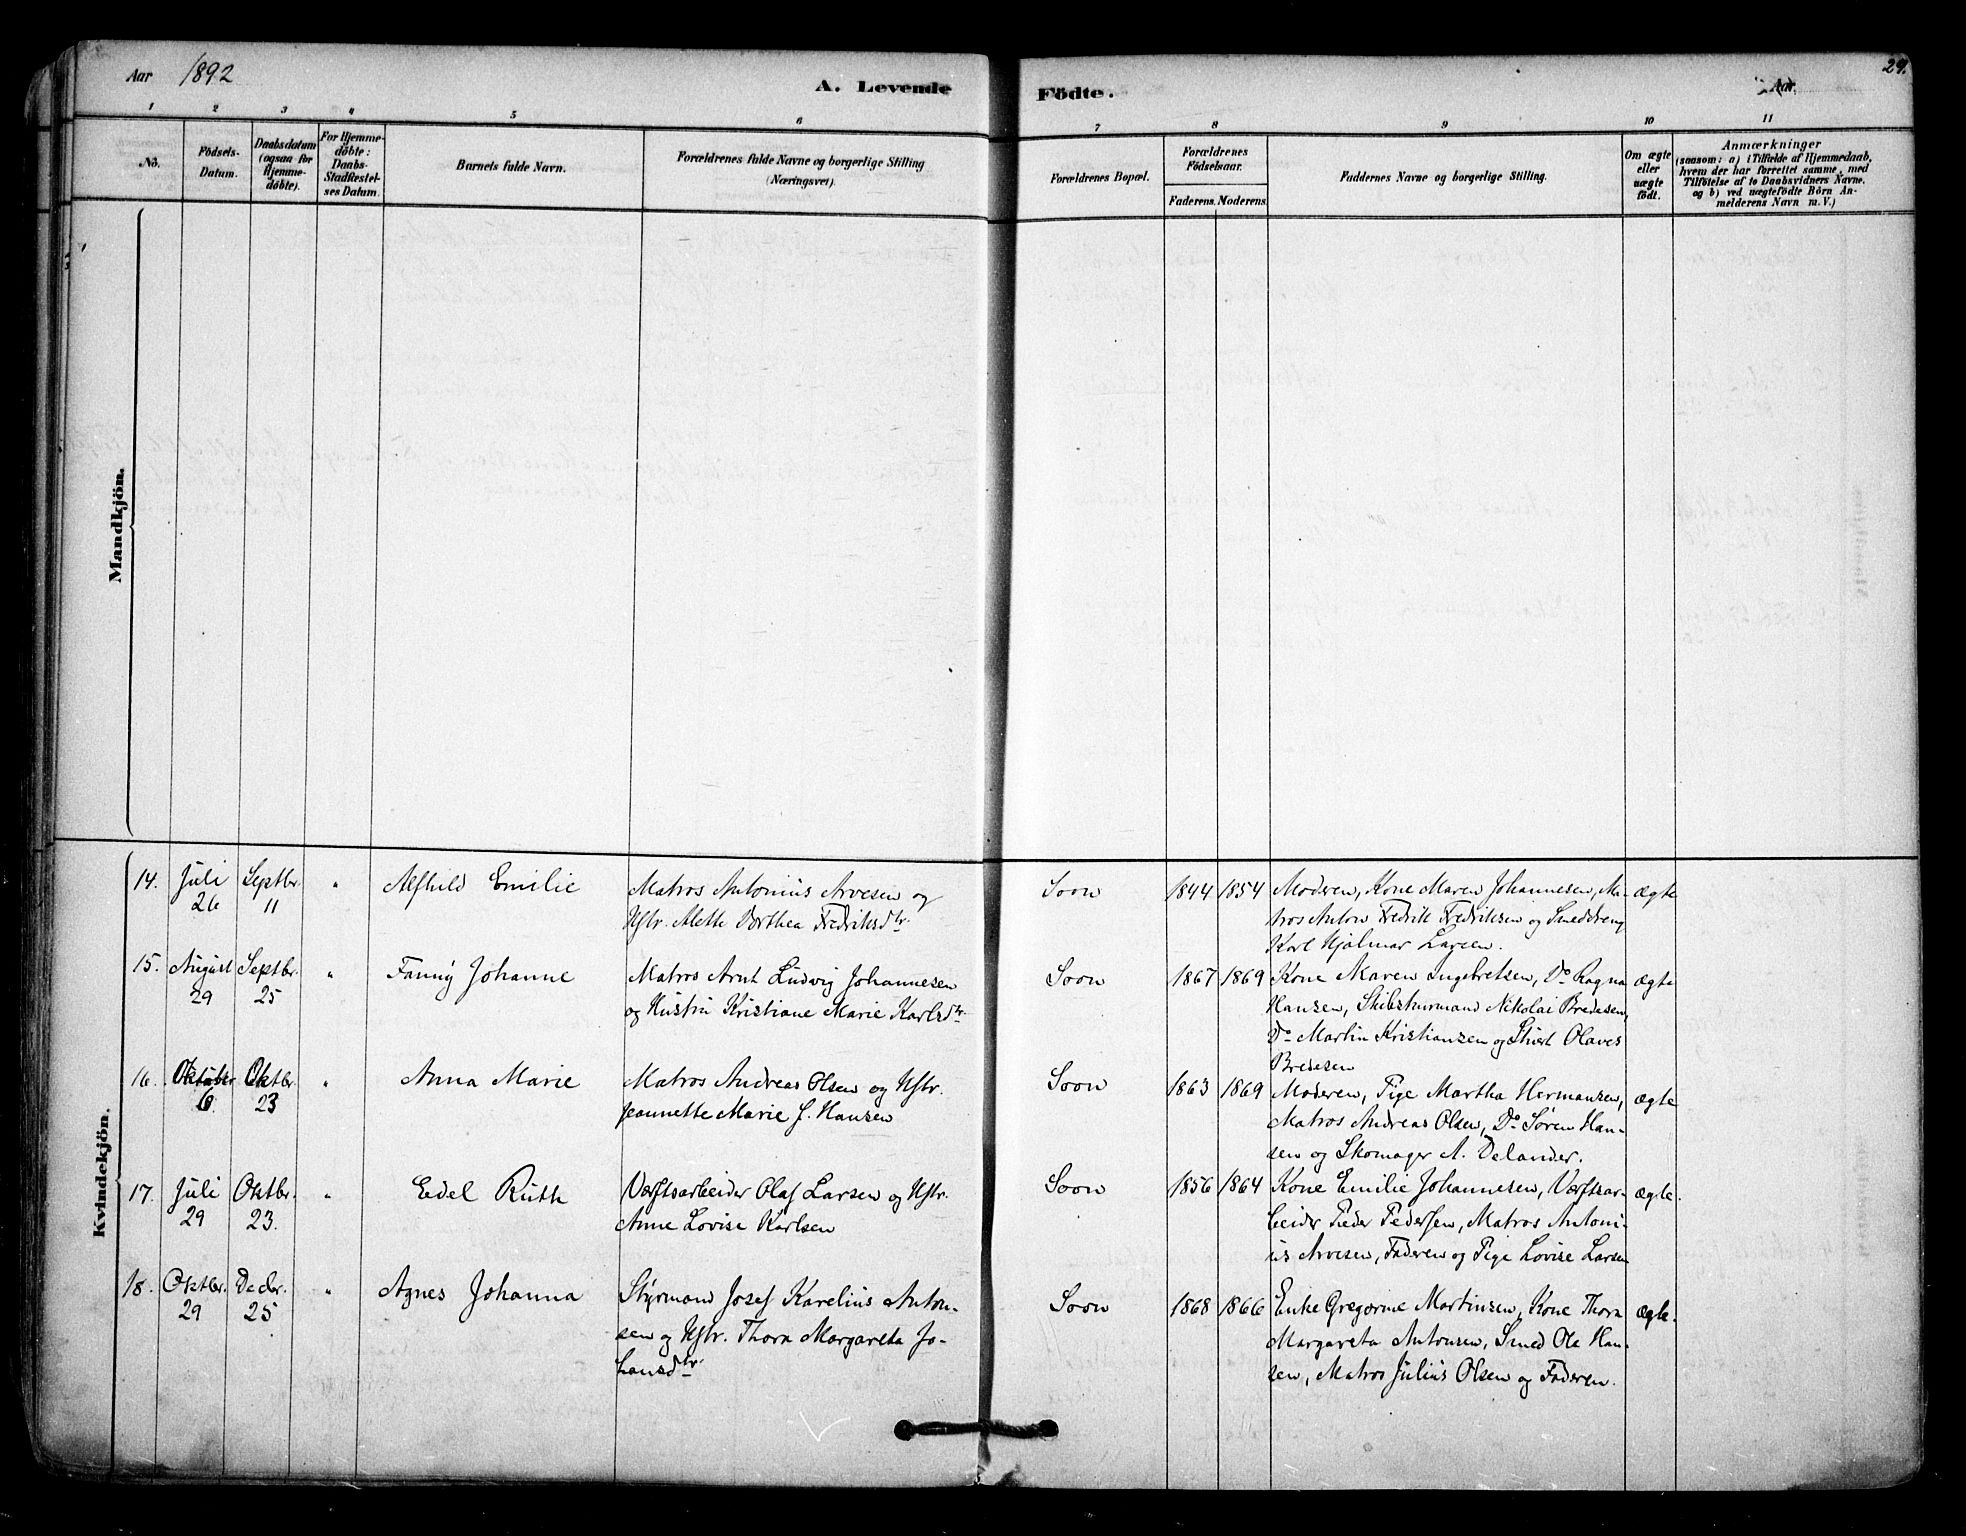 Aar 1892
A. Levende Födte.
Aar
29.
1 2 3 4 5 6 7 8 9 10 11
No.
Födsels-Datum.
Daabsdatum (ogsaa for Hjemme-döbte).
For Hjemme-döbte: Daabs-Stadfæstel-ses Datum.
Barnets fulde Navn.
Forældrenes fulde Navne og borgerlige Stilling
(Næringsvei).
Forældrenes Bopæl.
Forældrenes Födselsaar.
Faderens. Moderens.
Faddernes Navne og borgerlige Stilling.
Om ægte eller uægte födt.
Anmærkninger
(saasom: a) i Tilfælde af Hjemmedaab,
hvem der har forrettet samme, med
Tilföielse af to Daabsvidners Navne,
og b) ved uægtefödte Börn An-
melderens Navn m. V.)
Mandkjön.
Kvindekjön.
14. Juli 26 Septbr. 11 " Alfhild Emilie
Matros Antonius Arvesen og
Hstr. Alette Dorthea Fredriksdtr.
Soon 1844 1854
Moderen, Kone Maren Johannesen, Ma-
tros Anton Fredrik Fredriksen og Smeddreng
Karl Hjalmar Larsen.
ægte
15. August 29 Septbr. 25 " Fanny Johanne
Matros Arnt Ludvig Johannesen
og Hustru Kristiane Marie Karlsdtr.
Soon 1867 1869
Kone Maren Ingebretsen, Do Ragna
Hansen, Skibstürmand Nikolai Bredesen,
Do Martin Kristiansen og Olaves
Bredesen
ægte
16. Oktober 6. Oktbr. 23 " Anna Marie
Matros Andreas Olsen og Hstr.
Jeannette Marie J. Hansen
Soon 1863 1869
Moderen, Pige Martha Hermansen,
Matros Andreas Olsen, Do Sören Han-
sen og Skomager A. Delander.
ægte
17. Juli 29 Oktbr. 23. " Edel Ruth
Værftsarbeider Olaf Larsen og Hstr.
Anne Lovise Karlsen
Soon 1856 1864
Kone Emilie Johannesen, Værftsar-
beider Peder Pedersen, Matros Antoni-
us Arvesen, Faderen og Pige Lovise Larsen
ægte.
18. Oktbr. 29 Decbr. 25 " Agnes Johanna
Styrmand Josef Karelius Anton-
sen og Hstr. Thora Margareta Jo-
hansdtr.
Soon 1868 1866
Enke Gregorine Martinsen, Kone Thora
Margareta Antonsen, Smed Ole Han-
sen, Matros Julius Olsen og Faderen.
ægte.